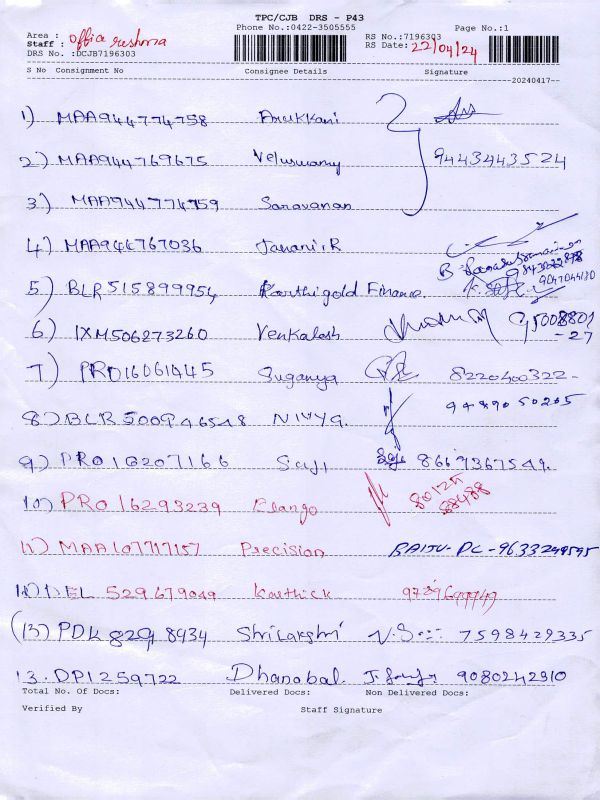 TPC/CJB DRS - P43
Phone No.:0422-3505555 Page No.:1
Area : office reshma
Staff :
RS No.:7196303
RS Date: 22/04/24
DRS No. :DCJB7196303
S No Consignment No Consignee Details Signature
20240417--
1) MAA944774758 Arukkani
2) MAA944769675 Veluswamy 9443443524
3) MAA944774759 Saravanan
4) MAA944767036 Janani.R
5) BLR515899954 Karthigold Finance. 9047044130
6) IXM506273260 Venkalash 95008801
-27
7) PRO16061445 Suganya 8220400322-
8) BLR500946548 Nivya. 9489050205
9) PRO16207166 Saji 8667367549.
10) PRO16293239 Elango 80125
88488
11) MAA107717157 Precision BAIJU-PC-9633249595
12) DEL 529679049 Karthick
(13) PDK 829 8934 Shrilakshri N.S 7598429335
13. DP1259722 Dhanabal. 9080242910
Total No. Of Docs: Delivered Docs: Non Delivered Docs:
Verified By Staff Signature